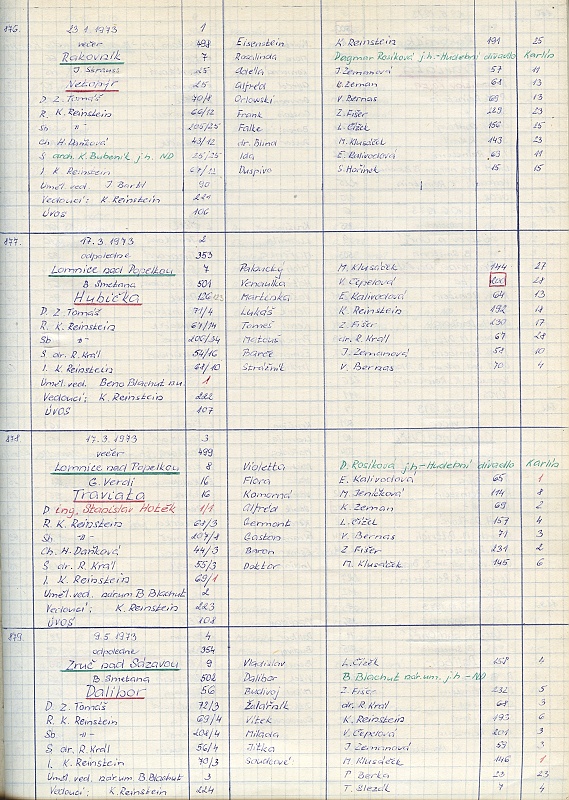 876. 23.1.1973 1
večer 498 Eisenstein K. Reinstein 191 25
Rakovník 7 Rosalinda Dagmar Rosíková j.h.-Hudební divadlo Karlín
J. Strauss 25 Adella J. Zemanová 57 11
Netopýr 25 Alfréd K. Zeman 68 13
D Z. Tomáš 70/8 Orlowski V. Bernas 69 13
R. K. Reinstein 66/12 Frank Z. Fišer 229 23
Sb -"- 205/25 Falke L. Čížek 156 25
Ch. H. Daňková 43/12 dr. Blind M. Klusáček 143 23
S arch. K. Bubeník j.h. ND 25/25 Ida E. Kalivodová 63 11
I. K. Reinstein 67/12 Duspivo S. Hořínek 15 15
Uměl. ved. J. Bartl 90
Vedoucí: K. Reinstein 221
ÚVOS 106
877. 17.3.1973 2
odpoledne 353
Lomnice nad Popelkou 7 Paloucký M. Klusáček 144 27
B. Smetana 501 Vendulka V. Čeperová 200 28
Hubička 126 Martinka E. Kalivodová 64 13
D Z Tomáš 71/4 Lukáš K. Reinstein 192 18
R. K. Reinstein 67/14 Tomeš Z. Fišer 230 17
Sb -"- 206/34 Matouš dr. R. Král 67 28
S dr. R. Král 54/16 Barče J. Zemanová 58 10
I. K. Reinstein 68/10 Strážník V. Bernas 70 4
Uměl. ved. Beno Blachut n.u. 1
Vedoucí: K. Reinstein 222
ÚVOS 107
878. 17.3.1973 3
večer 499
Lomnice nad Popelkou 8 Violetta D. Rosíková j.h-Hudební divadlo Karlín
G. Verdi 16 Flora E. Kalivodová 65 1
Traviata 16 Komorná M. Jeníčková 114 8
D ing. Stanislav Hošek 1/1 Alfréd K. Zeman 69 2
R. K. Reinstein 68/3 Germont L. Čížek 157 4
Sb -"- 207/8 Gaston V. Bernas 71 3
Ch. H. Daňková 44/3 Baron Z. Fišer 231 2
S dr. R. Král 55/3 Doktor M. Klusáček 145 6
I. K. Reinstein 69/1
Uměl. ved. národ. um. B. Blachut 2
Vedoucí: K. Reinstein 223
ÚVOS 108
879. 9.5.1973 4
odpoledne 354
Zruč nad Sázavou 9 Vladislav L. Čížek 158 1
B. Smetana 502 Dalibor B. Blachut nár.um. j.h-ND
Dalibor 56 Budivoj Z. Fišer 232 5
D Z. Tomáš 72/3 Žalářník dr. R. Král 68 3
R. K. Reinstein 69/4 Vítek K. Reinstein 193 6
Sb -"- 208/4 Milada V. Čeperová 201 3
S dr. R. Král 56/4 Jitka J. Zemanová 59 3
I. K. Reinstein 70/3 Soudcové M. Klusáček 146 1
Uměl. ved. nár.um B. Blachut 3 P Berka 23 23
Vedoucí: K. Reinstein 224 T. Slezák 7 4